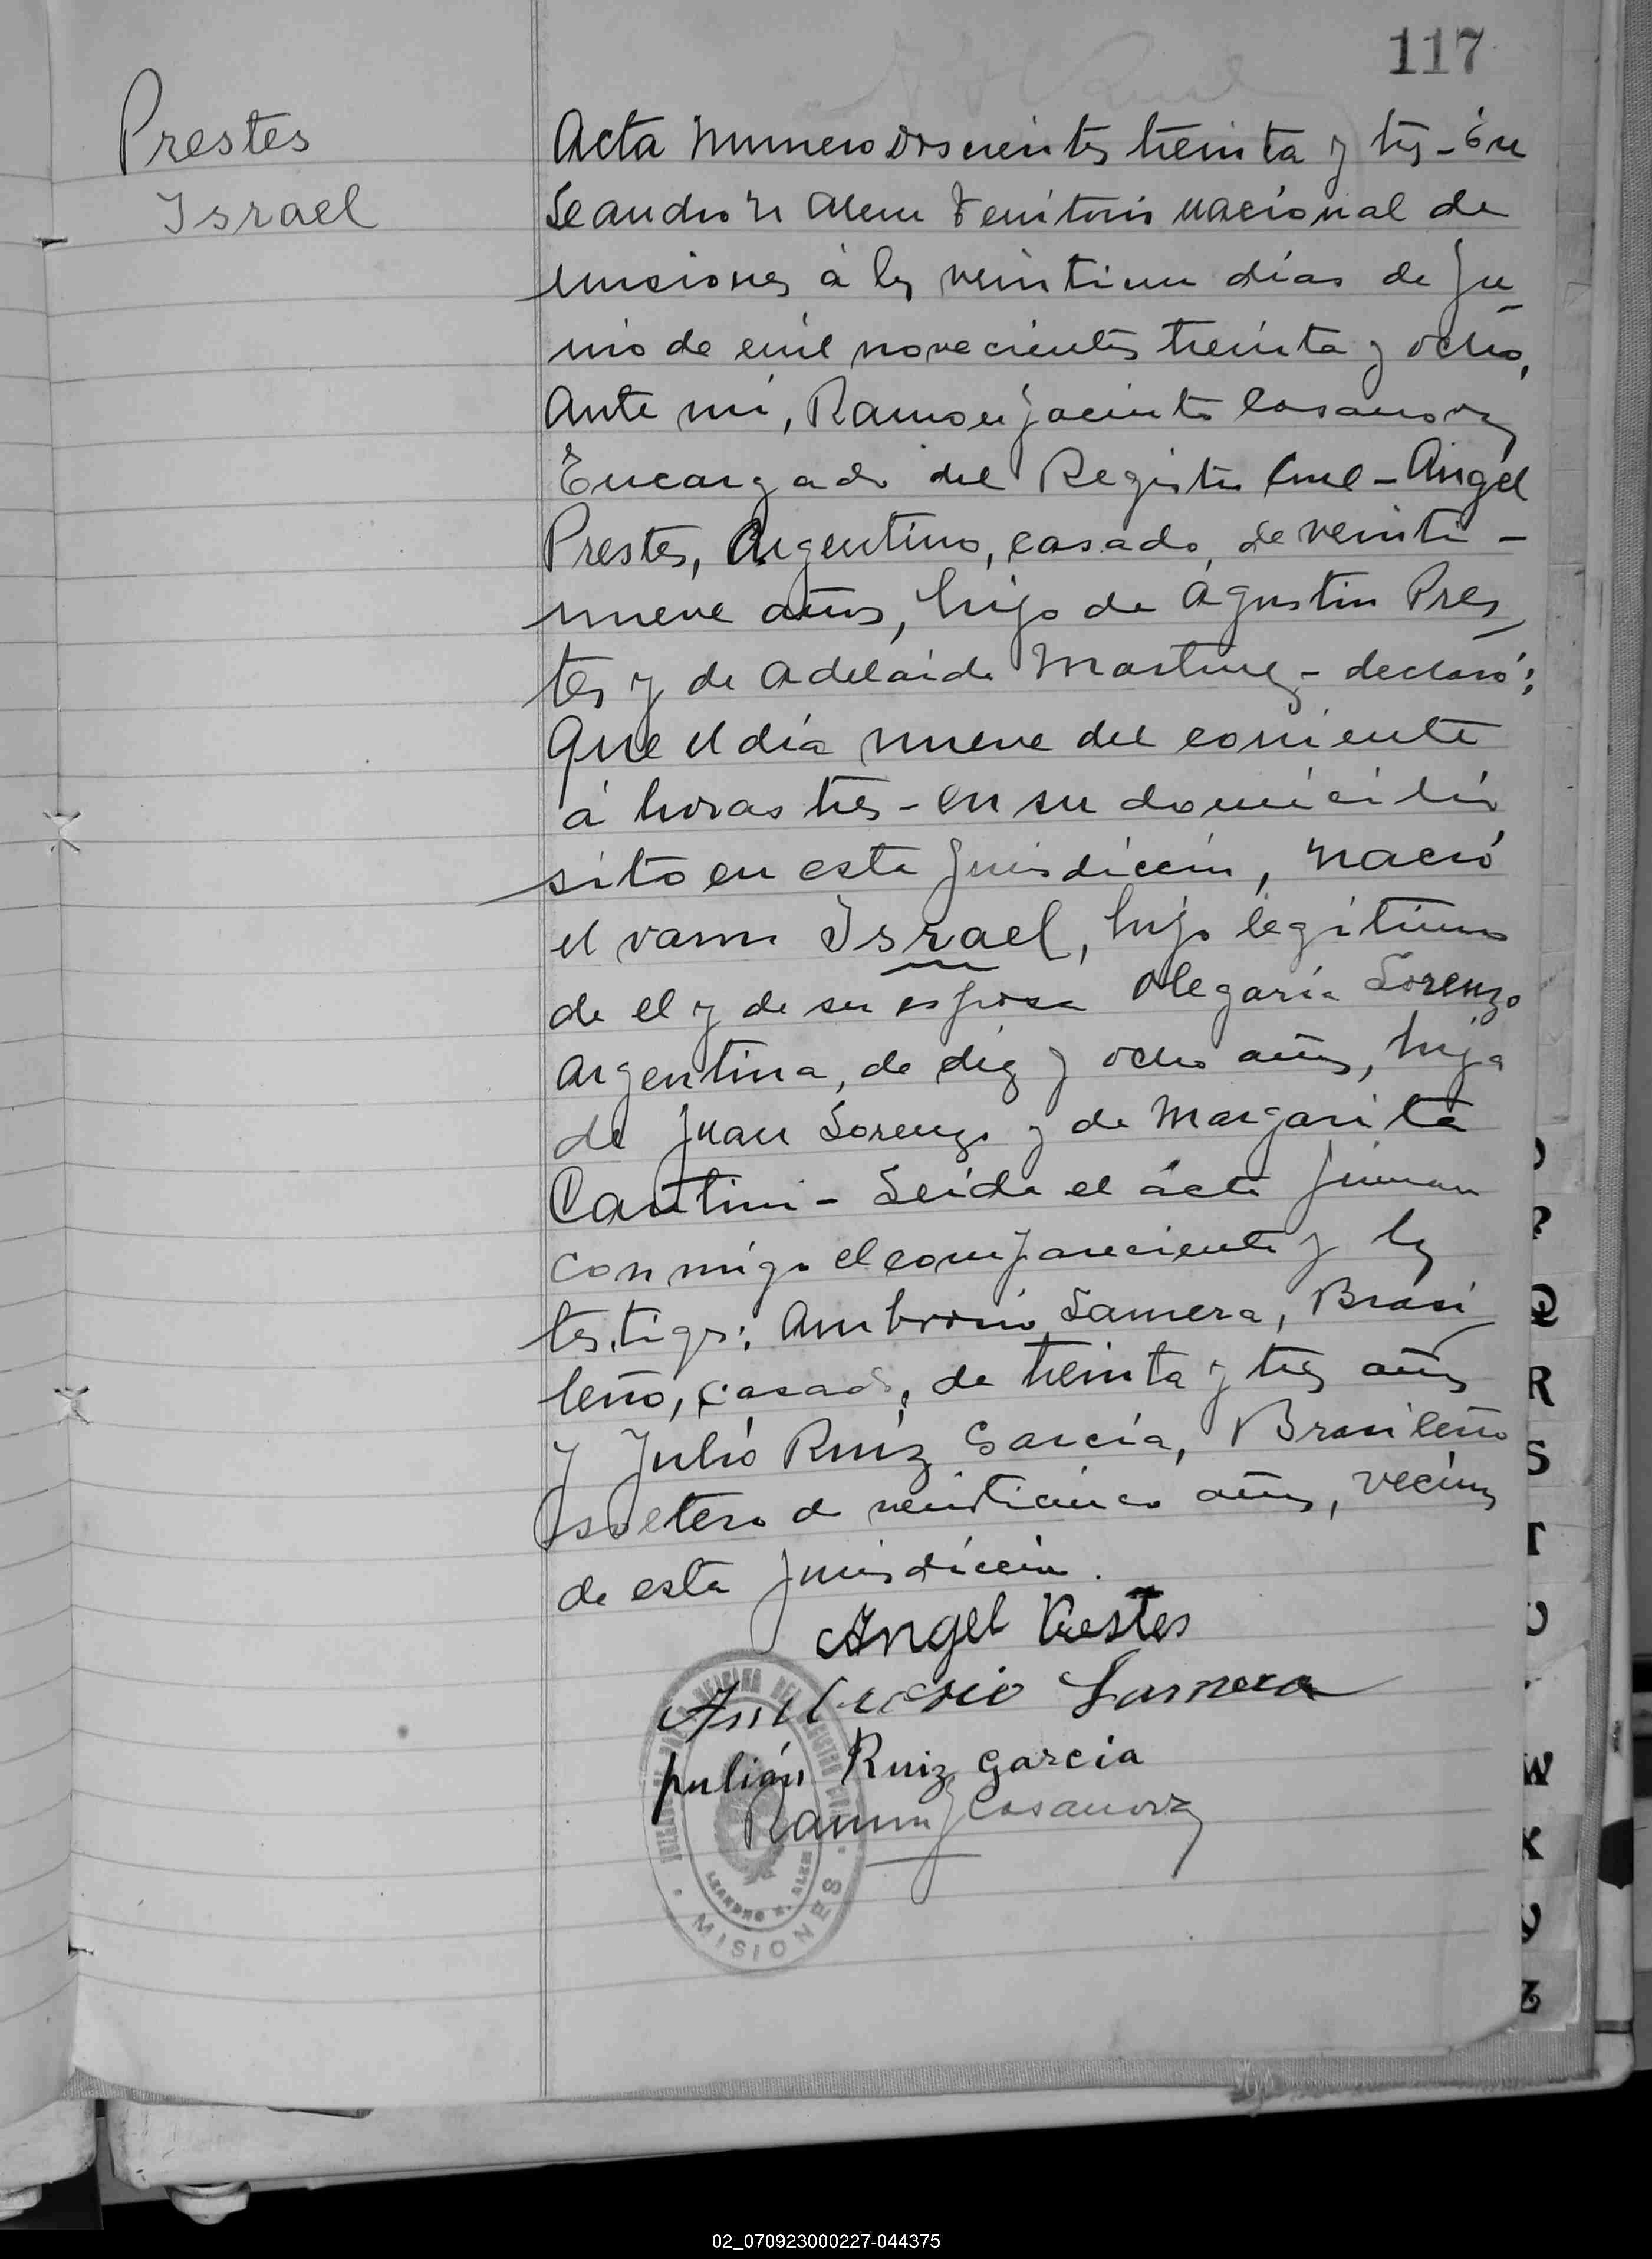 117
Prestes
Israel
Acta Numero Doscientos treinta y tres - En
Leandro N Alem Territorio Nacional de
Misiones á los veintiun días de Ju
nio de mil novecientos treinta y ocho,
Ante mi, Ramon Jacinto Casanova
Encargado del Registro Civil - Angel
Prestes, Argentino, casado, de veinti -
nueve años, hijo de Agustin Pres
tes y de Adelaida Martinez - declaró:
Que el día nueve del corriente
á horas tres - en su domicilio
sito en esta Jurisdiccion, nació
el varon Israel, hijo legitimo
de el y de su esposa Olegaria Lorenzo
Argentina, de diez y ocho años, hija
de Juan Lorenzo y de Margarita
Cantini - Leida el acta firman
conmigo el compareciente y los
testigos: Ambrosio Lamera, Brasi
leño, casado, de treinta y tres años
y Julio Ruiz Garcia, Brasileño
soltero de veinticinco años, vecinos
de esta Jurisdiccion.
Angel Prestes
Ambrosio Lamera
Julián Ruiz Garcia
Ramon J Casanova
LEANDRO N. ALEM
MISIONES
Q
R
S
T
U
W
X
Z
02_070923000227-044375